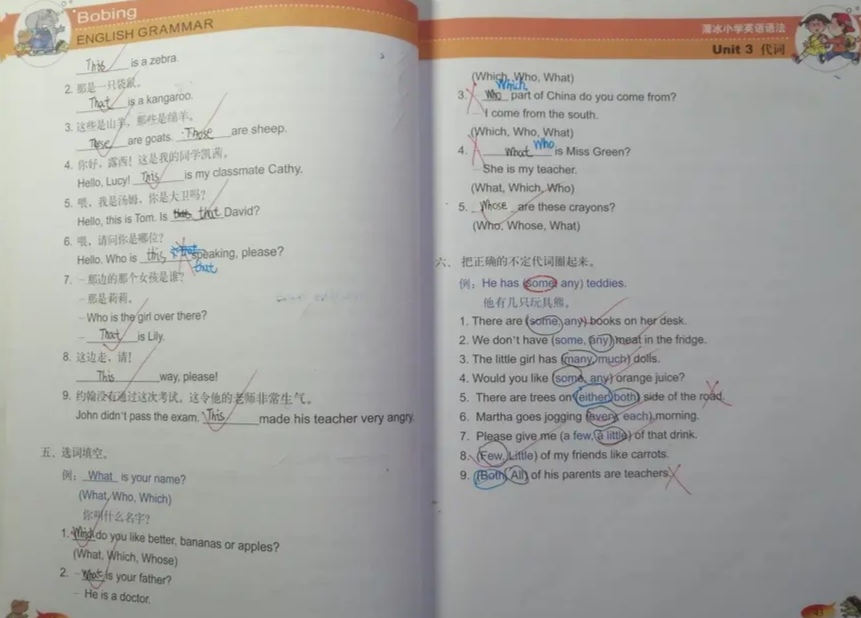 Bobing
ENGLISH GRAMMAR
This is a zebra.
2. 那是一只袋鼠。
That is a kangaroo.
3. 这些是山羊, 那些是绵羊。
These are goats. Those are sheep.
4. 你好, 露西! 这是我的同学凯茜。
Hello, Lucy! This is my classmate Cathy.
5. 喂, 我是汤姆, 你是大卫吗?
Hello, this is Tom. Is that David?
6. 喂, 请问你是哪位?
Hello. Who is this speaking, please?
that
7. – 那边的那个女孩是谁?
– 那是莉莉。
– Who is the girl over there?
– That is Lily.
8. 这边走, 请!
This way, please!
9. 约翰没有通过这次考试。这令他的老师非常生气。
John didn't pass the exam. This made his teacher very angry.
五、选词填空。
例: What is your name?
(What, Who, Which)
你叫什么名字?
1. do you like better, bananas or apples?
(What, Which, Whose)
2. – What is your father?
– He is a doctor.
薄冰小学英语语法
Unit 3 代词
(Which, Who, What)
Which
3. – Who part of China do you come from?
– I come from the south.
(Which, Who, What)
4. – What Who is Miss Green?
– She is my teacher.
(What, Which, Who)
5. Whose are these crayons?
(Who, Whose, What)
六、把正确的不定代词圈起来。
例: He has (some, any) teddies.
他有几只玩具熊。
1. There are (some, any) books on her desk.
2. We don't have (some, any) meat in the fridge.
3. The little girl has (many, much) dolls.
4. Would you like (some, any) orange juice?
5. There are trees on (either, both) side of the road.
6. Martha goes jogging (every, each) morning.
7. Please give me (a few, a little) of that drink.
8. (Few, Little) of my friends like carrots.
9. (Both, All) of his parents are teachers.